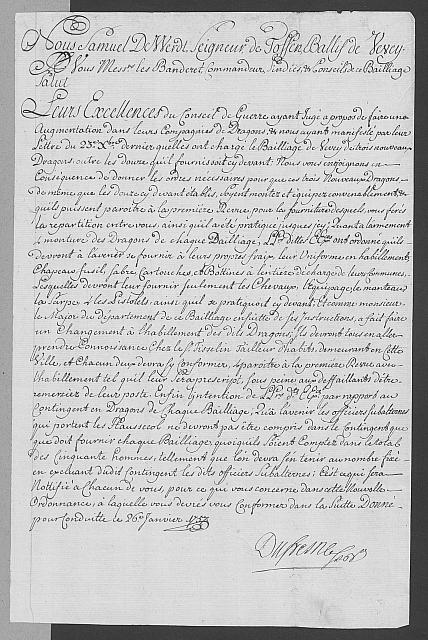 Nous Samuel De Werdt, Seigneur de Toffen, Ballif de Vevey
A Vous Mess.rs les Banderet, Commandeur, Sindics, & Conseils de ce Bailliage
Salut
Leurs Excellences du Conseil de Guerre ayant Jugé a propos de faire une
Augmentation dans leurs Compagnies de Dragons, & nous ayant manifesté par leur
Lettre du 23.e X.bre dernier quelles ont chargé le Bailliage de Vevey de trois nouveaux
Dragons, outre les douze qu'il fournissoit cy devant; Nous vous enjoignons en
Conséquence de donner les ordres nécessaires pour que ces trois Nouveaux Dragons
de même que les douze cy devant établis, soyent montez et équipez convenablement, &
quils puissent paroitre à la première Revüe, pour la fourniture desquels, vous ferés
la repartition entre vous, ainsi quil a eté pratiqué jusques icy; Quant a larmement
& monture des Dragons de chaque Bailliage, L.rs dittes Ex.ces ont ordonné quils
devront à l'avenir se fournir à leurs propres fraix, leur Uniforme en habillement
Chapeau, fusil, sabre, Cartouches, et Bottines à lentiere décharge de leurs Communes,
Lesquelles devront leur fournir seulement les Chevaux, l'équipage, le manteau
la sarpe & les Pistolets, ainsi quil se pratiquoit cy devant; Et comme monsieur
le Major du département de ce Bailliage ensuitte de ses Instructions, a fait faire
un changement à l'habillement des dits Dragons, Ils devront tous en aller
prendre Connoissance chez le S.r Tisselin Tailleur d'habits, demeurant en Cette
Ville, et chacun deux devra sy conformer, & paroitre à la premiere Revüe avec
l'habillement tel quil leur sera prescript, sous peine aux deffaillants d'être
remerciez de leur poste. Enfin l'intention de L.rs d.es Ex.ces par rapport au
Contingent en Dragons de Chaque Bailliage, est qu'à l'avenir les officiers subalternes
qui portent les Hausse col ne devront pas être compris dans le Contingent que
que doit fournir chaque Bailliage, quoiquils soient Comptez dans le total
des Cinquante hommes, tellement que l'on devra sen tenir au nombre fixé
en excluant dudit contingent les dits officiers subalternes; C'est ce qui sera
Notiffié à Chacun de vous, pour ce que vous concerne dans cette Nouvelle
Ordonnance, à laquelle vous devrés vous Conformer dans la Suitte Donné
pour Conduitte ce 26.e Janvier
Dufresne